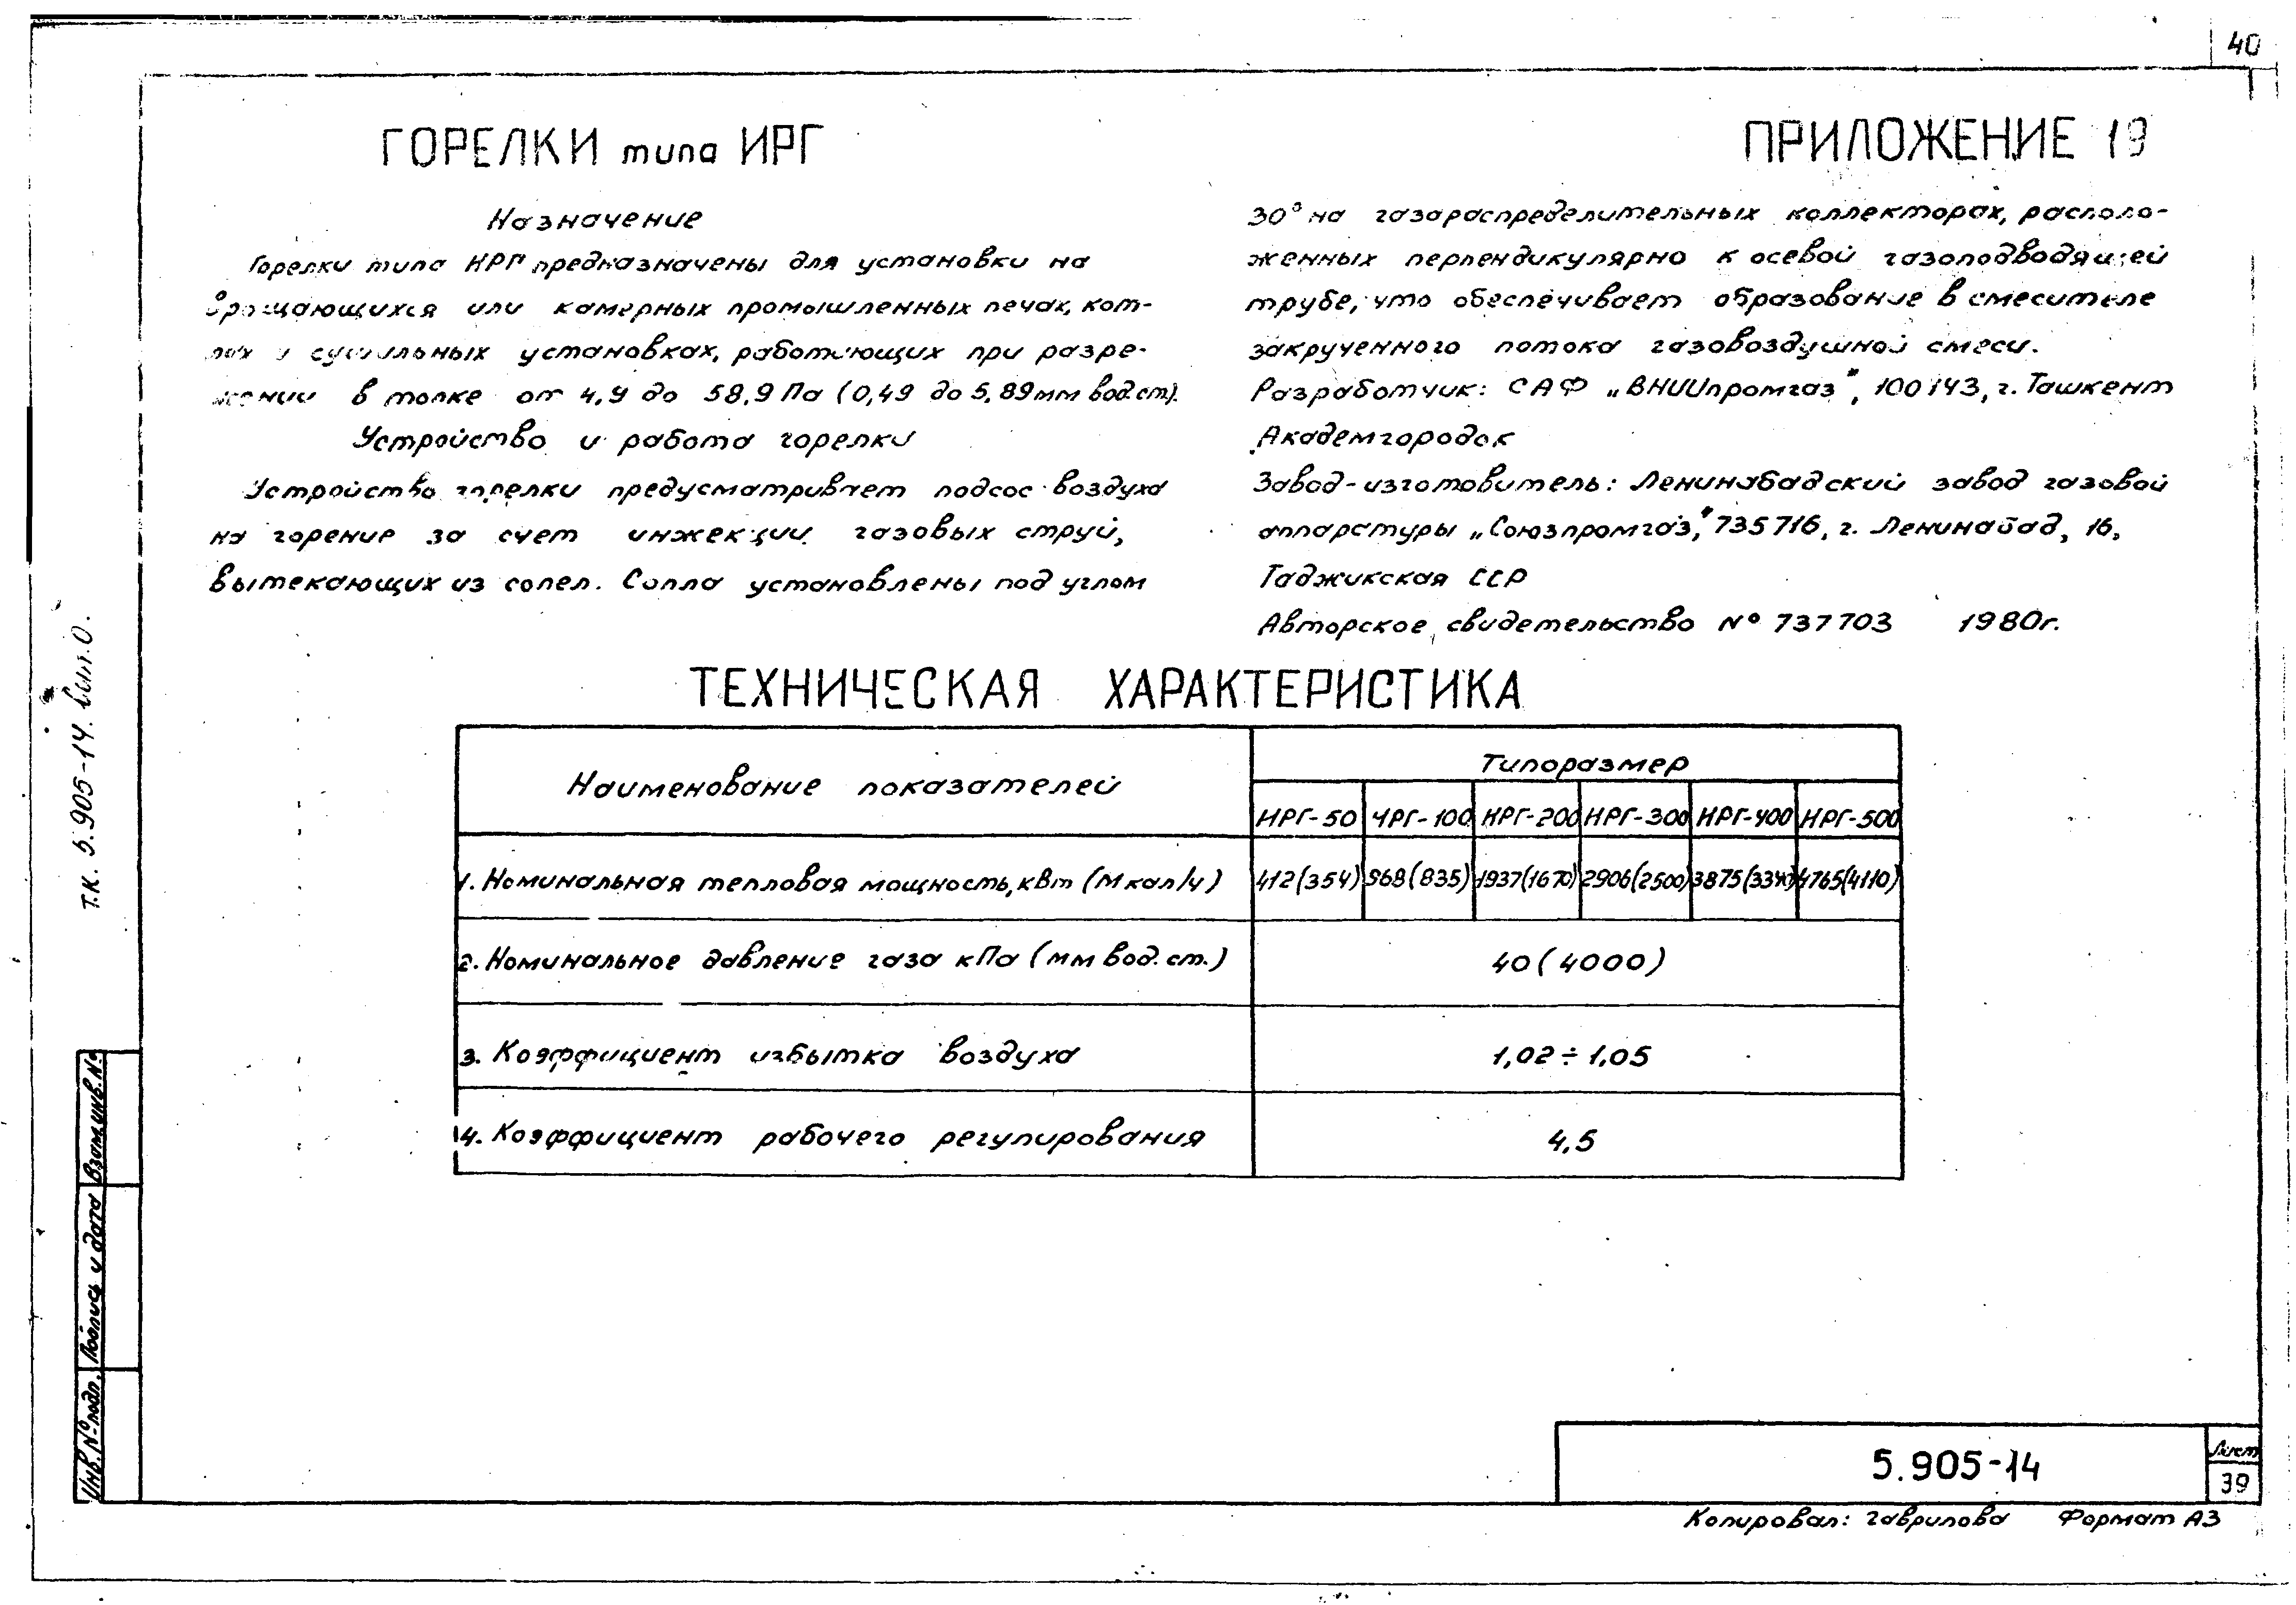 40
ГОРЕЛКИ типа ИРГ
ПРИЛОЖЕНИЕ 19
Назначение
Горелки типа ИРГ предназначены для установки на
вращающихся или камерных промышленных печах, кот-
лах и сушильных установках, работающих при разре-
жении в топке от 4,9 до 58,9 Па (0,49 до 5,89 мм вод.ст).
Устройство и работа горелки
Устройство горелки предусматривает подсос воздуха
на горение за счет инжекции газовых струй,
вытекающих из сопел. Сопла установлены под углом
30° на газораспределительных коллекторах, располо-
женных перпендикулярно к осевой газоподводящей
трубе, что обеспечивает образование в смесителе
закрученного потока газовоздушной смеси.
Разработчик: САФ „ВНИИпромгаз", 100143, г. Ташкент
Академгородок
Завод-изготовитель: Ленинабадский завод газовой
аппаратуры „Союзпромгаз," 735716, г. Ленинабад, 16,
Таджикская ССР
Авторское свидетельство № 737703 1980г.
ТЕХНИЧЕСКАЯ ХАРАКТЕРИСТИКА
Наименование показателей
Типоразмер
ИРГ-50 ИРГ-100 ИРГ-200 ИРГ-300 ИРГ-400 ИРГ-500
1. Номинальная тепловая мощность, кВт (Мкал/ч) 412(354) 968(835) 1937(1670) 2906(2500) 3875(3340) 4765(4110)
2. Номинальное давление газа кПа (мм вод. ст.) 40 (4000)
3. Коэффициент избытка воздуха 1,02 ÷ 1,05
4. Коэффициент рабочего регулирования 4,5
Т.К. 5.905-14. вып.0.
Взам.инв.№
Подпись и дата
Инв.№ подл.
5.905-14
Лист
39
Копировал: Гаврилова Формат А3